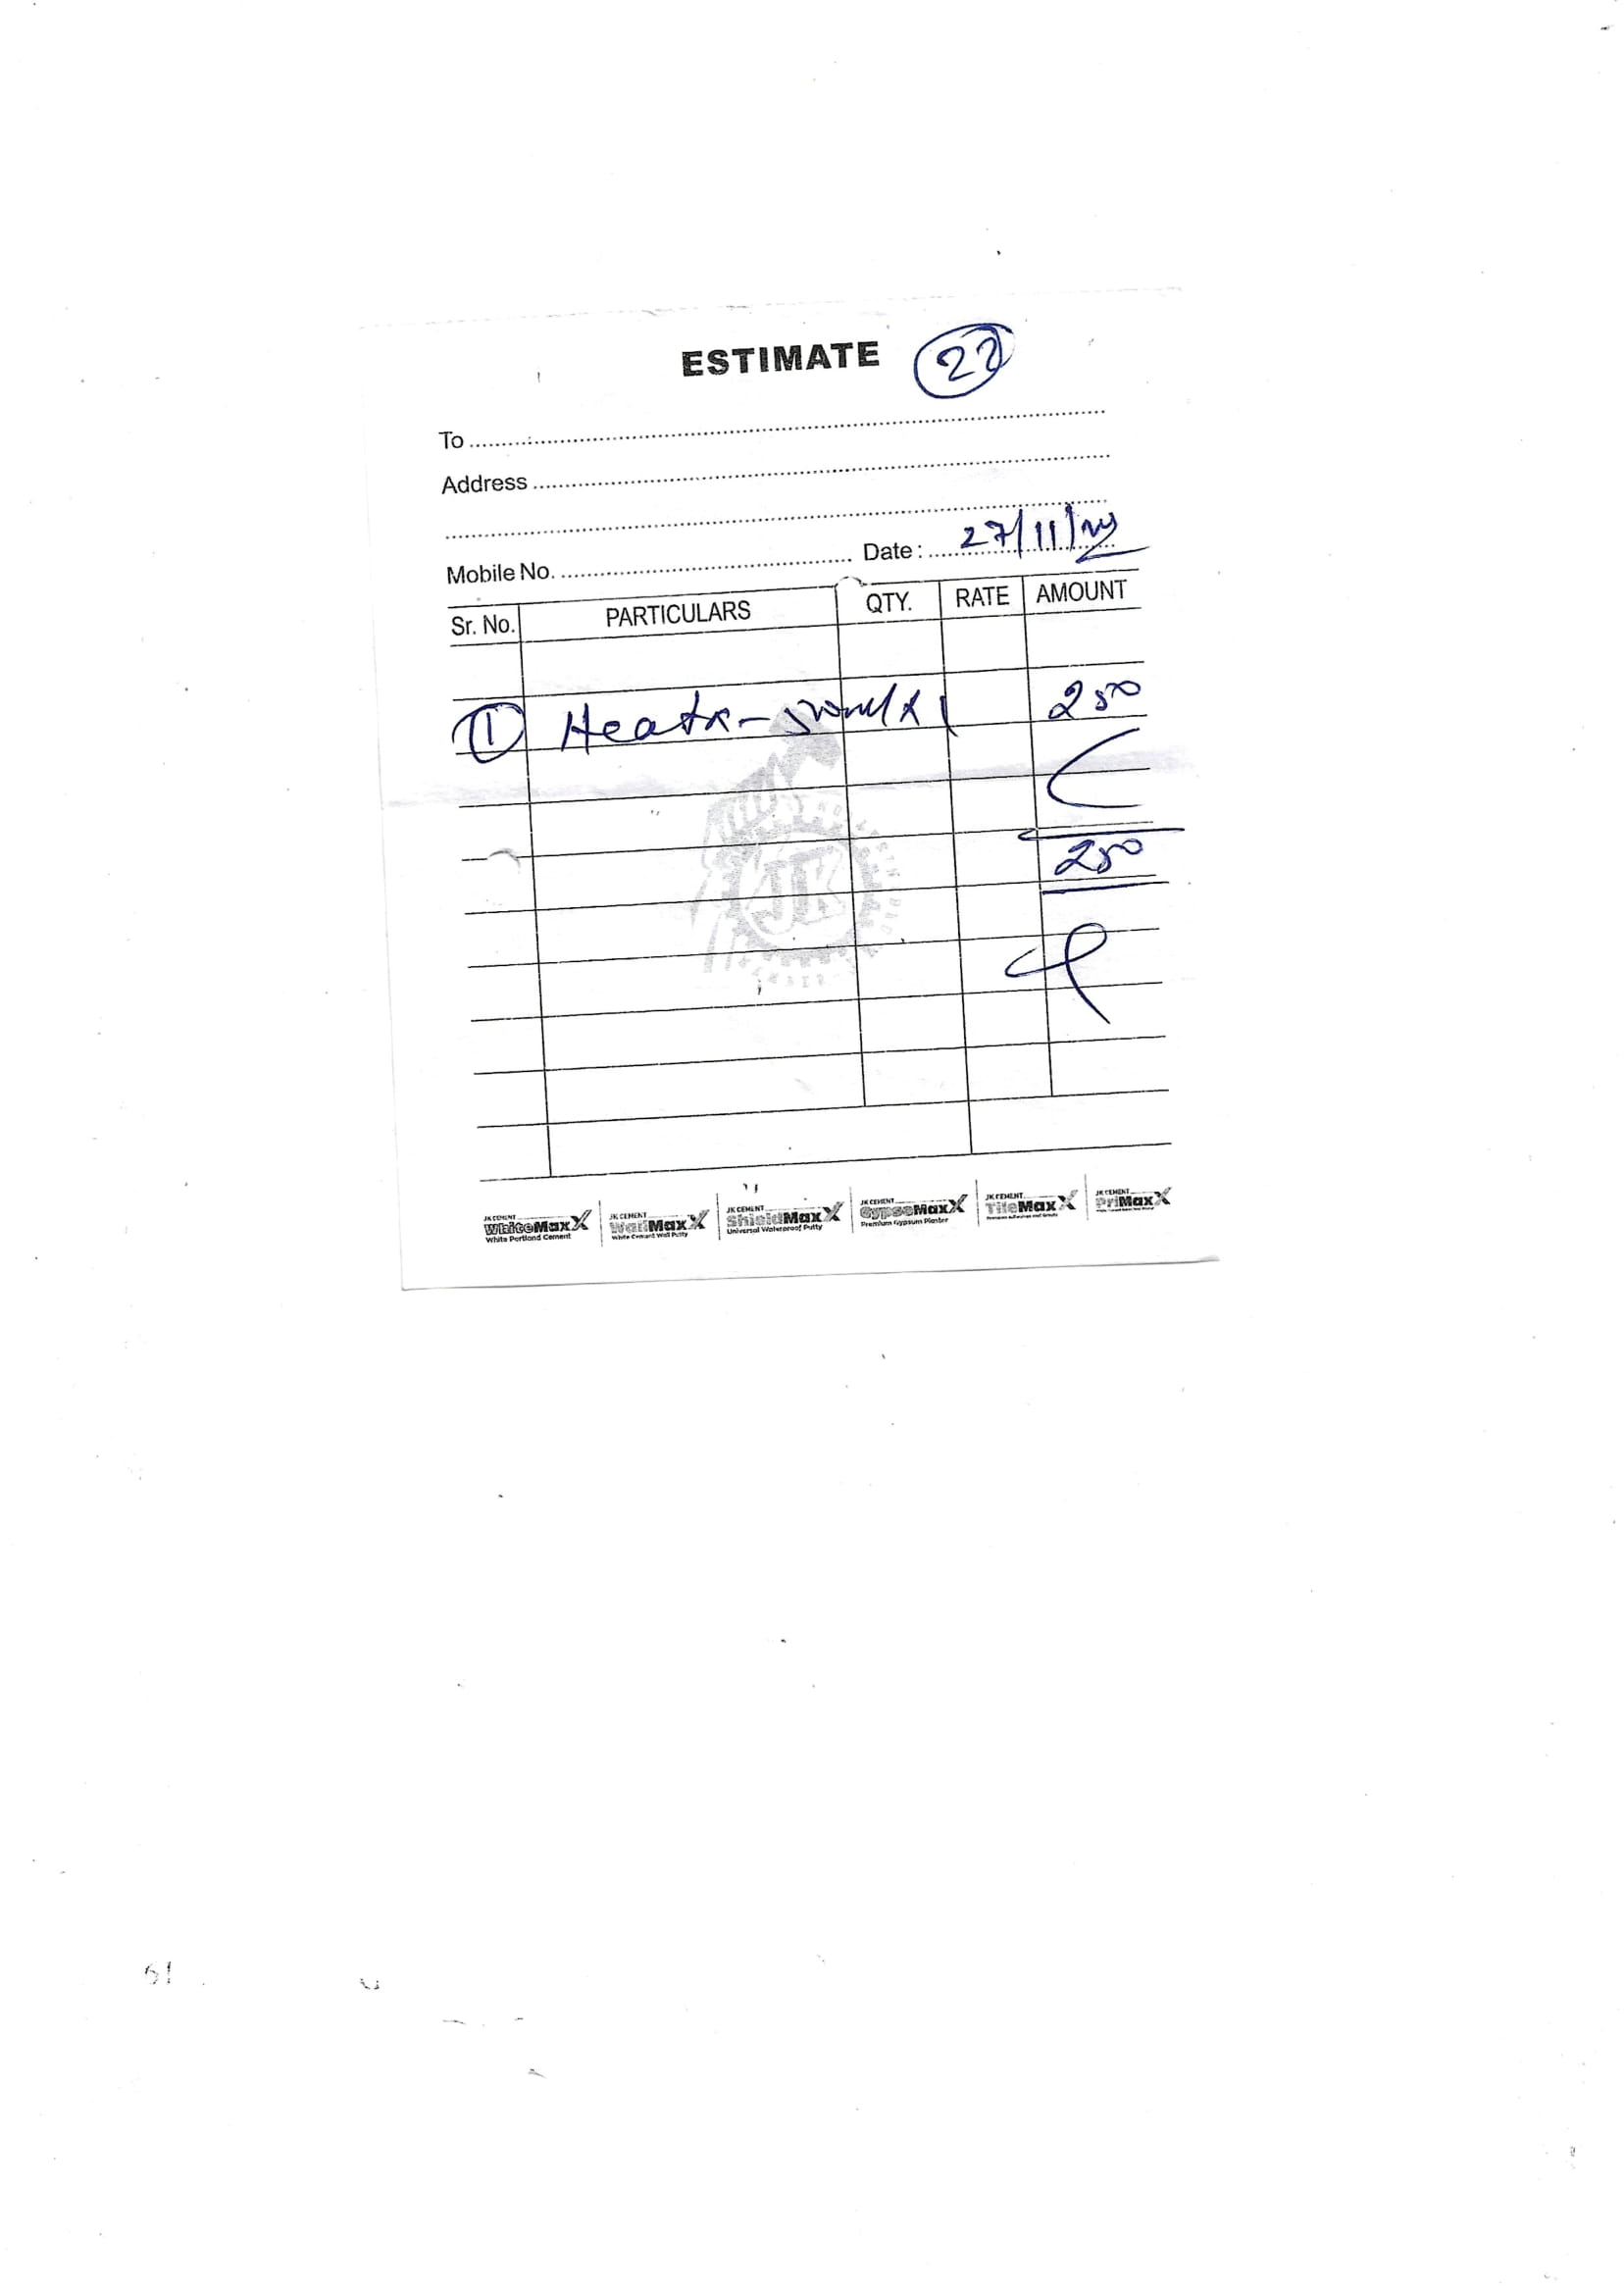 ESTIMATE 22
To
Address
Mobile No. Date: 27/11/
Sr. No. PARTICULARS QTY. RATE AMOUNT
1 250
250
JK
JK CEMENT WhiteMaxX White Portland Cement
JK CEMENT WallMaxX White Cement Wall Putty
JK CEMENT ShieldMaxX Universal Waterproof Putty
JK CEMENT GypsoMaxX Premium Gypsum Plaster
JK CEMENT TileMaxX
JK CEMENT PriMaxX